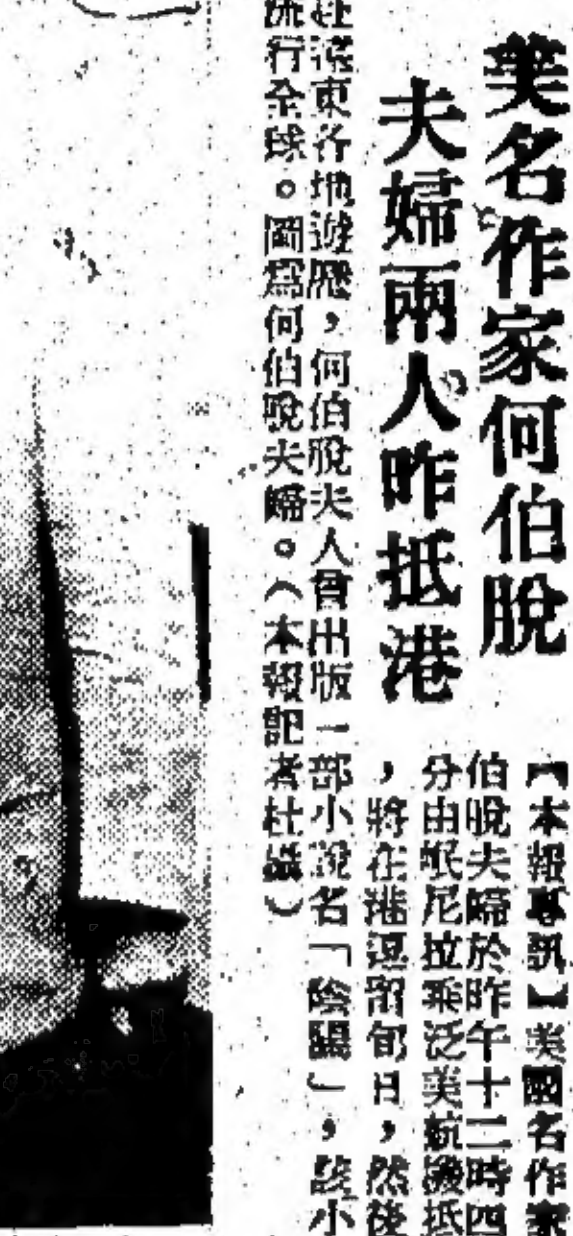 美名作家何伯脫
夫婦兩人昨抵港
【本報專訊】美國名作家
伯脫夫婦於昨午十二時四
分由岷尼拉乘泛美航機抵
，將在港逗留旬日，然後
赴遠東各地遊歷，何伯脫夫人曾出版一部小說名「陰陽」，該小
流行全球。圖爲何伯脫夫婦。（本報記者杜攝）